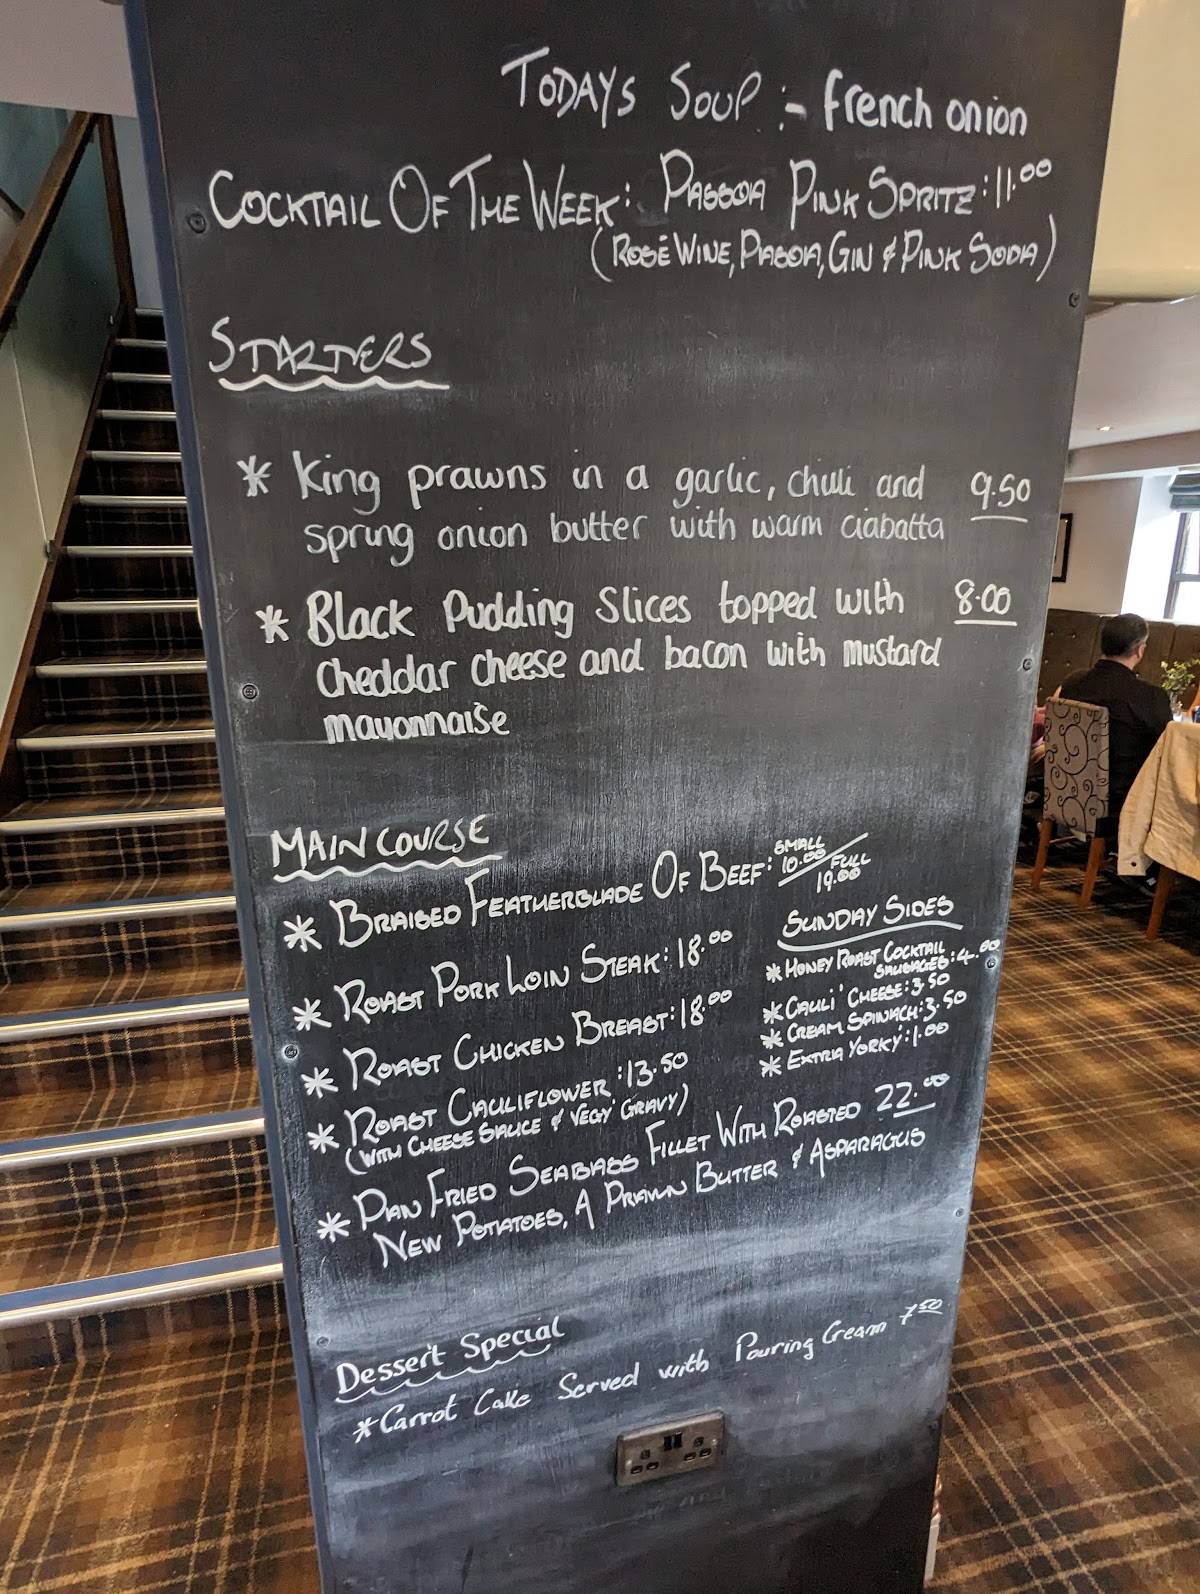 TODAYS SOUP :- french onion
COCKTAIL OF THE WEEK: PASSOA PINK SPRITZ: 11.00
(ROSÉ WINE, PASSOA, GIN & PINK SODA)
STARTERS
* King prawns in a garlic, chilli and 9.50
spring onion butter with warm ciabatta
* Black Pudding Slices topped with 8.00
cheddar cheese and bacon with mustard
mayonnaise
MAIN COURSE
* BRAISED FEATHERBLADE OF BEEF: SMALL 10.00 / FULL 19.00
* ROAST PORK LOIN STEAK: 18.00
* ROAST CHICKEN BREAST: 18.00
* ROAST CAULIFLOWER: 13.50
(WITH CHEESE SAUCE & VEGY' GRAVY)
* PAN FRIED SEABASS FILLET WITH ROASTED 22.00
NEW POTATOES, A PRAWN BUTTER & ASPARAGUS
SUNDAY SIDES
* HONEY ROAST COCKTAIL
SAUSAGES: 4.00
* CAULI' CHEESE: 3.50
* CREAM SPINACH: 3.50
* EXTRA YORKY: 1.00
Dessert Special
* Carrot Cake Served with Pouring Cream 7.50